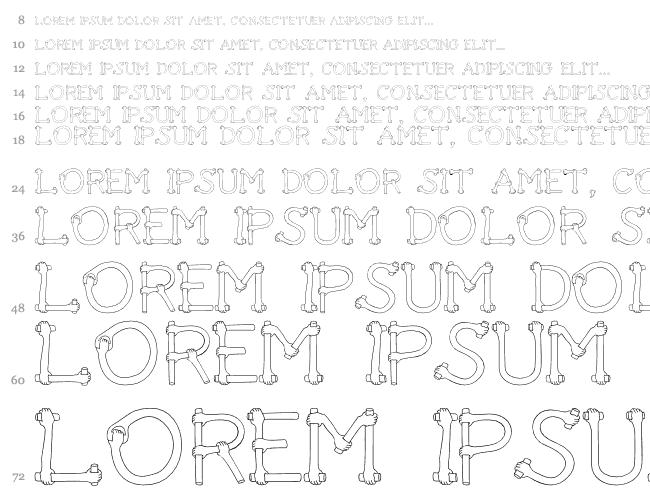 8 LOREM IPSUM DOLOR SIT AMET, CONSECTETUER ADIPISCING ELIT...
10 LOREM IPSUM DOLOR SIT AMET, CONSECTETUER ADIPISCING ELIT...
12 LOREM IPSUM DOLOR SIT AMET, CONSECTETUER ADIPISCING ELIT...
14 LOREM IPSUM DOLOR SIT AMET, CONSECTETUER ADIPISCING
16 LOREM IPSUM DOLOR SIT AMET, CONSECTETUER ADIPI
18 LOREM IPSUM DOLOR SIT AMET, CONSECTETUE
24 LOREM IPSUM DOLOR SIT AMET, CO
36 LOREM IPSUM DOLOR S
48 LOREM IPSUM DOL
60 LOREM IPSUM
72 LOREM IPSU